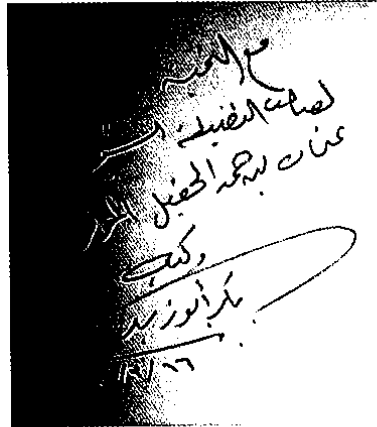 مع التحية
لصاحب الفضيلة الشيخ
عثمان بن حمد الحقيل الموقر
وكتب
بكر أبو زيد